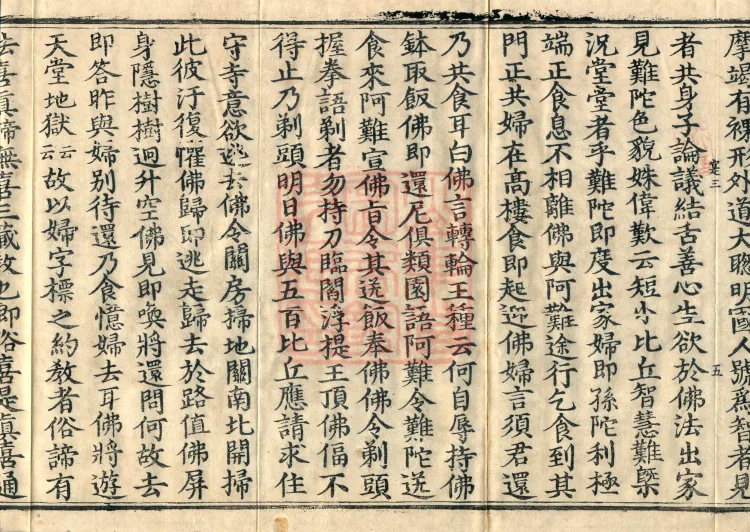 摩竭有裸形外道大聰明國人號爲智者見
五
者共身子論議結舌善心生欲於佛法出家
見難陀色貌姝偉歎云短小比丘智慧難槩
況堂堂者乎難陀即度出家婦即孫陀利極
端正食息不相離佛與阿難途行乞食到其
門正共婦在高樓食即起迎佛婦言須君還
乃共食耳白佛言轉輪王種云何自辱持佛
鉢取飯佛即還尼俱類園語阿難令難陀送
食來阿難宣佛旨令其送飯奉佛佛令剃頭
握拳語剃者勿持刀臨閻浮提王頂佛偪不
得止乃剃頭明日佛與五百比丘應請求住
守寺意欲逃去佛令關房掃地關南北開掃
此彼汙復懼佛歸即逃走歸去於路值佛屏
身隱樹樹迴升空佛見即喚將還問何故去
即答昨與婦別待還乃食憶婦去耳佛將遊
天堂地獄云云故以婦字標之約教者俗諦有
法喜眞諦無喜三藏教也即俗喜是眞喜通